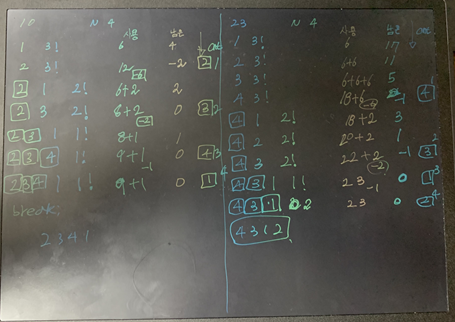 10 N 4
사용 남은
1 3! 6 4
2 3! 12 -6 -2 2 1
2 1 2! 6+2 2
2 3 2! 6+2 -2 0 3 2
2 3 1 1! 8+1 1
2 3 4 1! 9+1 -1 0 4 3
2 3 4 1 1! 9+1 0 1 4
break;
2 3 4 1
23 N 4
사용 남은
1 3! 6 17
2 3! 6+6 11
3 3! 6+6+6 5
4 3! 18+6 -1 4
4 1 2! 18+2 3
4 2 2! 20+2 1
4 3 2! 22+2 -2 -1 3 2
4 3 1 1! 23 -1 0 1 3
4 3 1 2 23 0 2 4
4 3 1 2